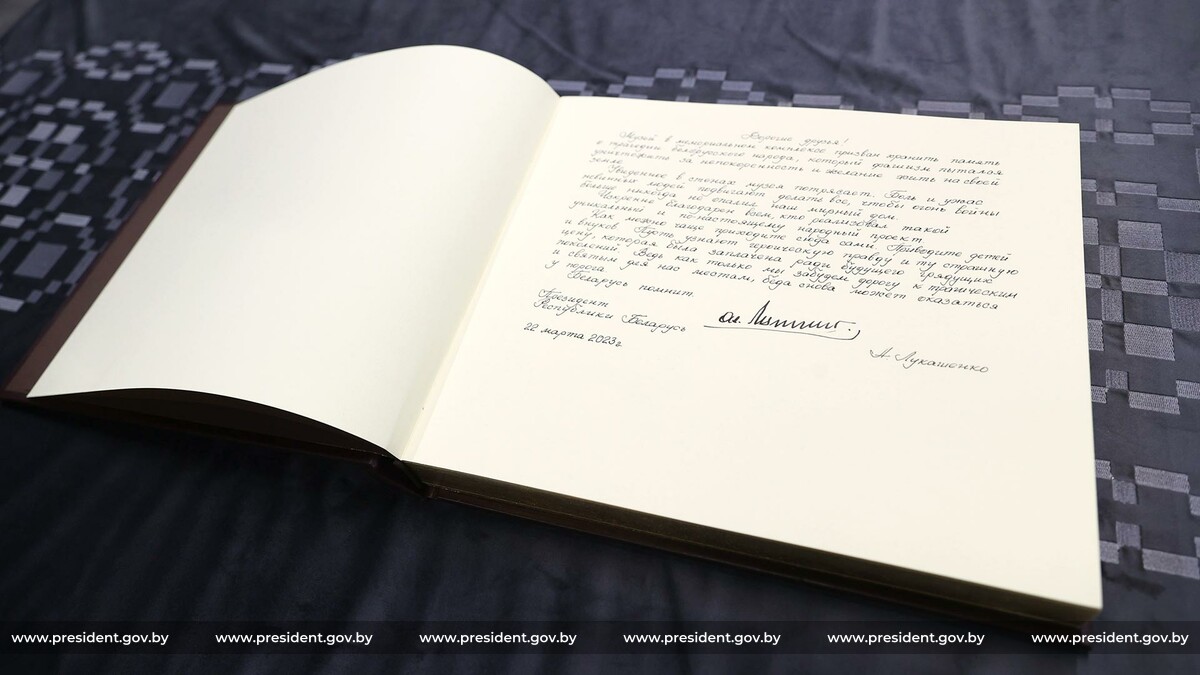 Дорогие друзья!
Музей в мемориальном комплексе призван хранить память
о трагедии белорусского народа, который фашизм пытался
уничтожить за непокоренность и желание жить на своей
земле.
Увиденное в стенах музея потрясает. Боль и ужас
невинных людей подвигают делать все, чтобы огонь войны
больше никогда не опалил наш мирный дом.
Искренне благодарен всем, кто реализовал такой
уникальный и по-настоящему народный проект.
Как можно чаще приходите сюда сами. Приводите детей
и внуков. Пусть узнают героическую правду и ту страшную
цену, которая была заплачена ради будущего грядущих
поколений. Ведь как только мы забудем дорогу к трагическим
и святым для нас местам, беда снова может оказаться
у порога.
Беларусь помнит.
Президент
Республики Беларусь
22 марта 2023г.
А. Лукашенко
www.president.gov.by www.president.gov.by www.president.gov.by www.president.gov.by www.president.gov.by www.president.gov.by